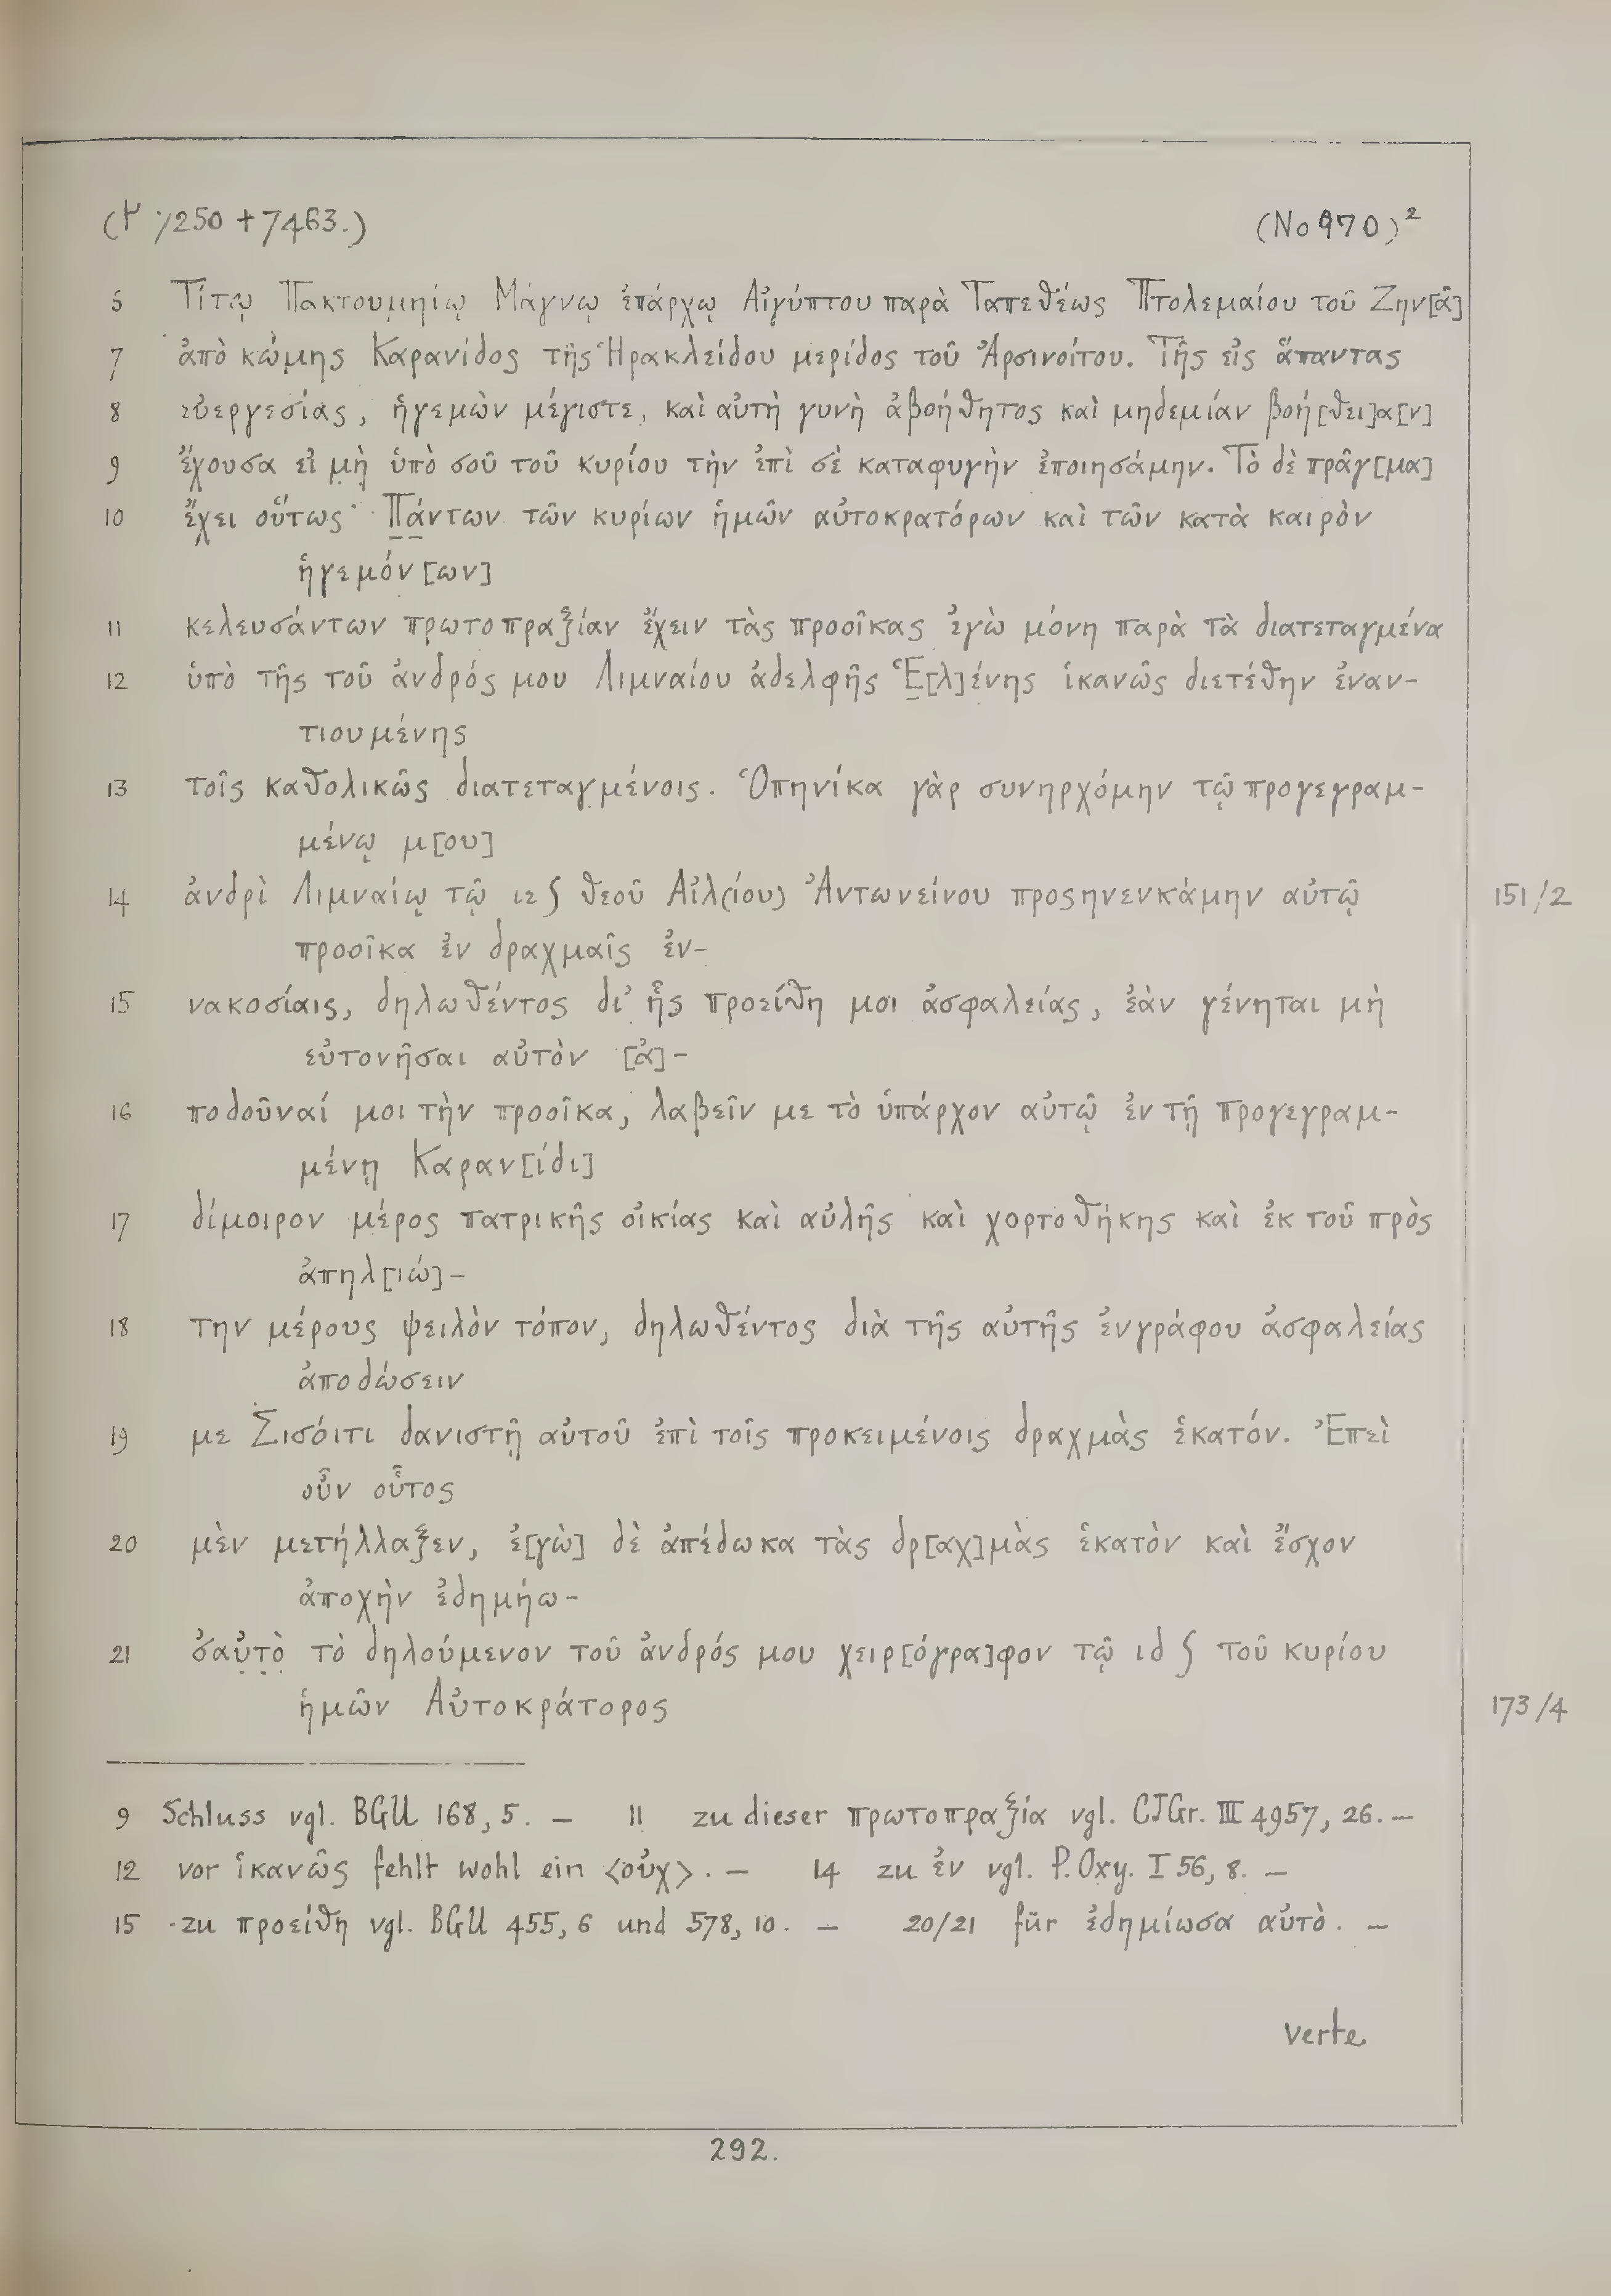 (P 7250 + 7463.) (No 970)²
6 Τίτῳ Πακτουμηίῳ Μάγνῳ ἐπάρχῳ Αἰγύπτου παρὰ Ταπεθέως Πτολεμαίου τοῦ Ζην[ᾶ]
7 ἀπὸ κώμης Καρανίδος τῆς Ἡρακλείδου μερίδος τοῦ Ἀρσινοίτου. Τῆς εἰς ἅπαντας
8 εὐεργεσίας, ἡγεμὼν μέγιστε, καὶ αὐτὴ γυνὴ ἀβοήθητος καὶ μηδεμίαν βοή[θει]α[ν]
9 ἔχουσα εἰ μὴ̣ ὑπὸ σοῦ τοῦ κυρίου τὴν ἐπὶ σὲ καταφυγὴν ἐποιησάμην. Τὸ δὲ πρᾶγ[μα]
10 ἔχει οὕτως· Πάντων τῶν κυρίων ἡμῶν αὐτοκρατόρων καὶ τῶν κατὰ καιρὸν
ἡγεμόν[ων]
11 κελευσάντων πρωτοπραξίαν ἔχειν τὰς προοῖκας ἐγὼ μόνη παρὰ τὰ διατεταγμένα
12 ὑπὸ τῆς τοῦ ἀνδρός μου Λιμναίου ἀδελφῆς Ἑ[λ]ένης ἱκανῶς διετέθην ἐναν-
τιουμένης
13 τοῖς καθολικῶς διατεταγμένοις. Ὁπηνίκα γὰρ συνηρχόμην τῷ προγεγραμ-
μένῳ μ[ου]
14 ἀνδρὶ Λιμναίῳ τῷ ιε ʃ θεοῦ Αἰλ(ίου) Ἀντωνείνου προςηνενκάμην αὐτῷ 151/2
προοῖκα ἐν δραχμαῖς ἐν-
15 νακοσίαις, δηλωθέντος δι' ἧς προείθη μοι ἀσφαλείας, ἐὰν γένηται μὴ
εὐτονῆσαι αὐτὸν [ἀ]-
16 ποδοῦναί μοι τὴν προοῖκα, λαβεῖν με τὸ ὑπάρχον αὐτῷ ἐν τῇ προγεγραμ-
μένῃ Καραν[ίδι]
17 δίμοιρον μέρος πατρικῆς οἰκίας καὶ αὐλῆς καὶ χορτοθήκης καὶ ἐκ τοῦ πρὸς
ἀπηλ[ιώ]-
18 την μέρους ψειλὸν τόπον, δηλωθέντος διὰ τῆς αὐτῆς ἐνγράφου ἀσφαλείας
ἀποδώσειν
19 με Σισόιτι δανιστῇ αὐτοῦ ἐπὶ τοῖς προκειμένοις δραχμὰς ἑκατόν. Ἐπεὶ
οὖν οὗτος
20 μὲν μετήλλαξεν, ἐ[γὼ] δὲ ἀπέδωκα τὰς δρ[αχ]μὰς ἑκατὸν καὶ ἔσχον
ἀποχὴν ἐδημήω-
21 σαὐ̣τ̣ὸ̣ τὸ δηλούμενον τοῦ ἀνδρός μου χειρ[όγρα]φον τῷ ιδ ʃ τοῦ κυρίου
ἡμῶν Αὐτοκράτορος 173/4
9 Schluss vgl. BGU 168, 5. — 11 zu dieser πρωτοπραξία vgl. CJGr. III 4957, 26. —
12 vor ἱκανῶς fehlt wohl ein <οὐχ>. — 14 zu ἐν vgl. P. Oxy. I 56, 8. —
15 zu προείθη vgl. BGU 455, 6 und 578, 10. — 20/21 für ἐδημίωσα αὐτὸ. —
verte
292.